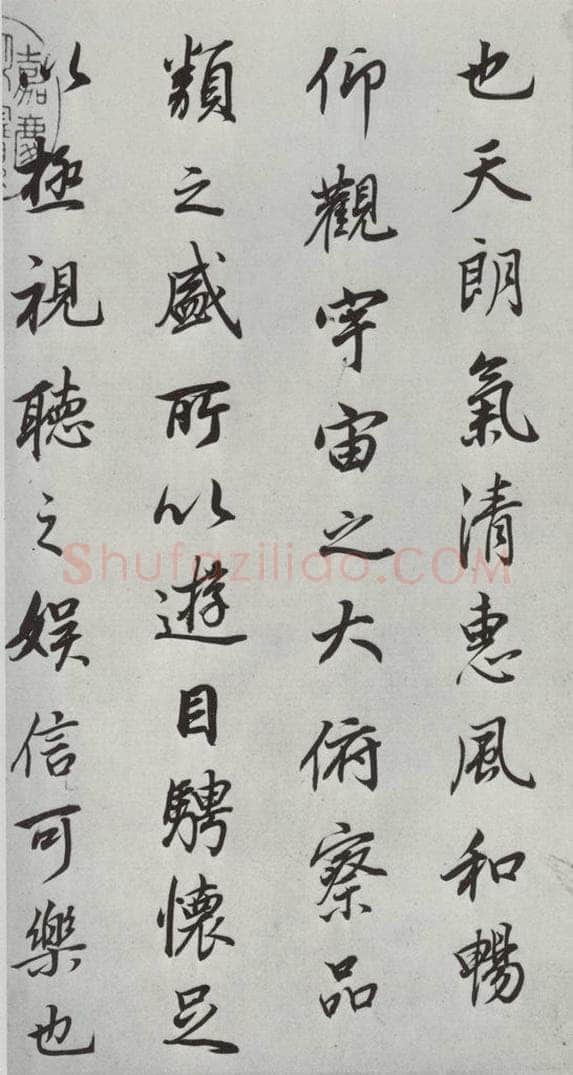 也天朗氣清惠風和暢
仰觀宇宙之大俯察品
類之盛所以遊目騁懷足
以極視聽之娛信可樂也
嘉慶
Shufaziliao.COM